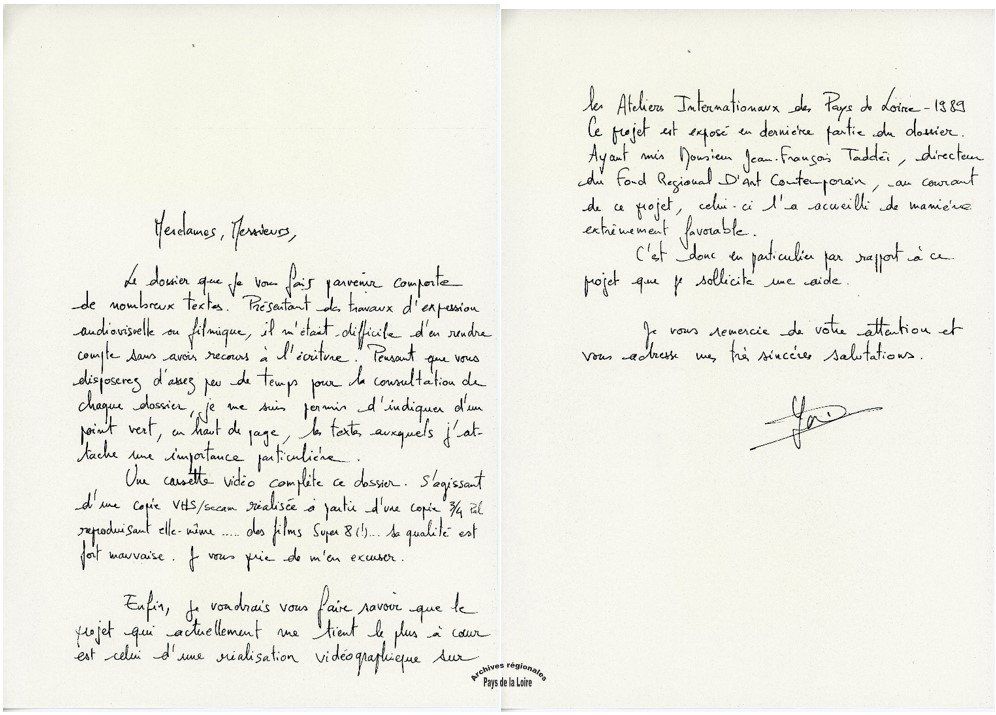 Mesdames, Messieurs,
Le dossier que je vous fais parvenir comporte
de nombreux textes. Présentant des travaux d'expression
audiovisuelle ou filmique, il m'était difficile d'en rendre
compte sans avoir recours à l'écriture. Pensant que vous
disposerez d'assez peu de temps pour la consultation de
chaque dossier, je me suis permis d'indiquer d'un
point vert, en haut de page, les textes auxquels j'at-
tache une importance particulière.
Une cassette vidéo complète ce dossier. S'agissant
d'une copie VHS/secam réalisée à partir d'une copie 3/4 Pal
reproduisant elle-même ..... des films Super 8 (!)... sa qualité est
fort mauvaise. Je vous prie de m'en excuser.
Enfin, je voudrais vous faire savoir que le
projet qui actuellement me tient le plus à cœur
est celui d'une réalisation vidéographique sur
les Ateliers Internationaux des Pays de Loire - 1989
Ce projet est exposé en dernière partie du dossier.
Ayant mis Monsieur Jean-François Taddéi, directeur
du Fond Regional D'Art Contemporain, au courant
de ce projet, celui-ci l'a accueilli de manière
extrêmement favorable.
C'est donc en particulier par rapport à ce
projet que je sollicite une aide.
Je vous remercie de votre attention et
vous adresse mes très sincères salutations.
Archives régionales
Pays de la Loire